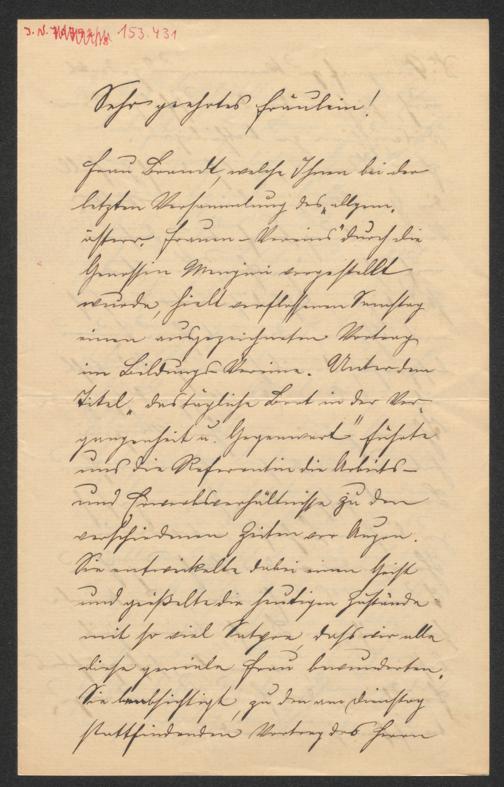 J. N. 153.431
Sehr geehrtes Fräulein!
Frau Brandt, welche Ihnen bei der
letzten Versammlung des „allgem.
österr. Frauen-Vereins" durch die
Genossin vorgestellt
wurde, hielt verflossenen Samstag
einen ausgezeichneten Vortrag
im Bildungs-Vereine. Unter dem
Titel „das tägliche Brot in der Ver-
gangenheit u. Gegenwart" führte
uns die Referentin die Arbeits-
und Erwerbsverhältnisse zu den
verschiedenen Zeiten vor Augen.
Sie entwickelte dabei einen Geist
und geißelte die heutigen Zustände
mit so viel Satyre, dass wir alle
diese geniale Frau bewunderten.
Sie beabsichtigt, zu dem am Dienstag
stattfindenden Vortrag des Herrn